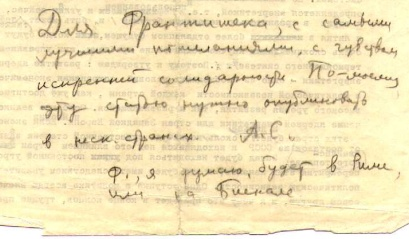 Для Франтишека, с самыми
лучшими пожеланиями, с чувством
искренней солидарности. По-моему
эту статью нужно опубликовать
в неск. странах. А.С.
Ф., я думаю, будет в Риме,
или на Биенале